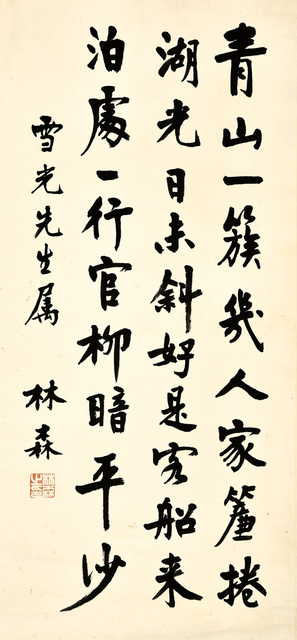 青山一簇幾人家簾捲
湖光日未斜好是客船来
泊處一行官柳暗平沙
雪光先生属
林森